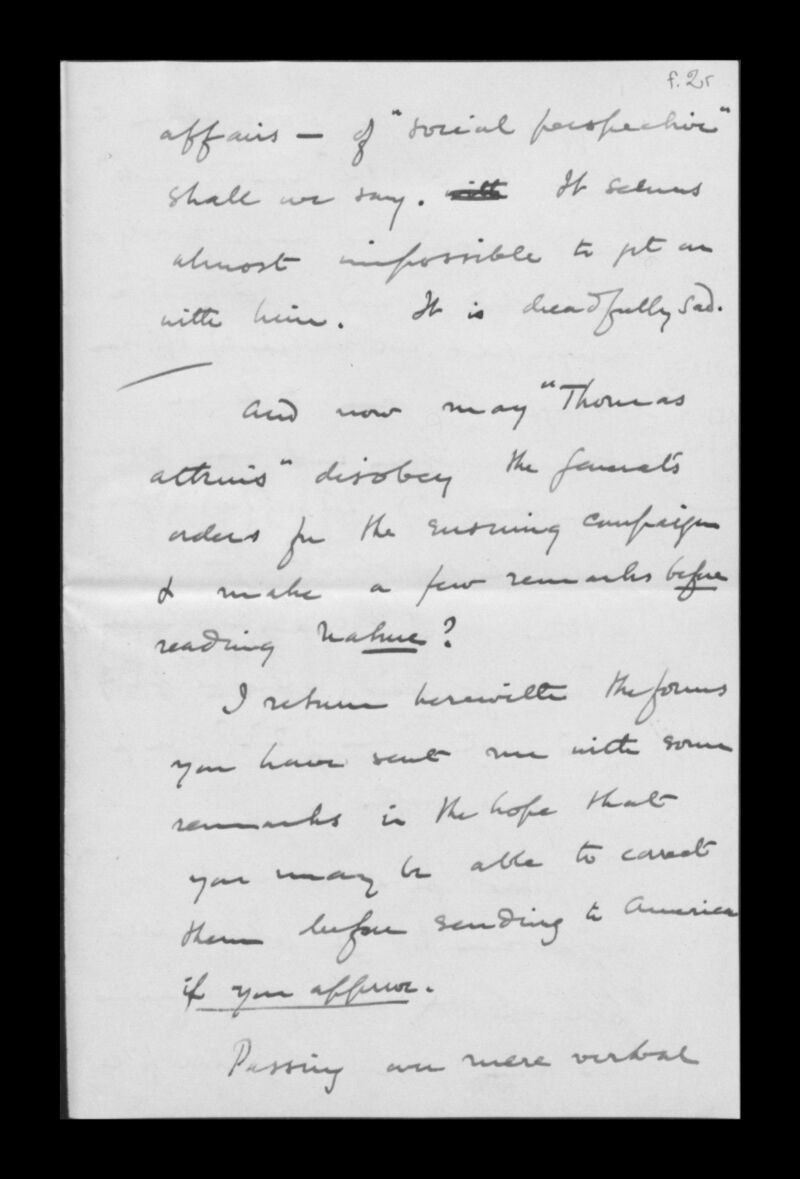 f. 2r
affairs — of "social perspective"
shall we say. with It seems
almost impossible to get on
with him. It is dreadfully sad.
And now may "Thomas
attkins" disobey the General's
orders for the ensuing campaign
& make a few remarks before
reading Nature?
I return herewith the forms
you have sent me with some
remarks in the hope that
you may be able to correct
them before sending to America
if you approve.
Passing over mere verbal